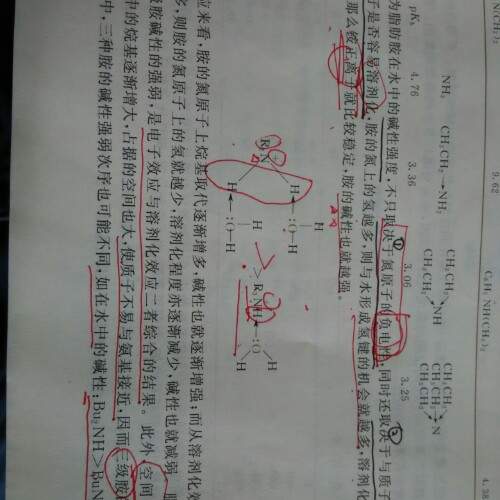 N(CH₃)₂
9.62
C₆H₅NH(CH₃)₂
4.3
NH₃ CH₃CH₂→NH₂ CH₃CH₂ CH₃CH₂ NH CH₃CH₂ CH₃CH₂ CH₃CH₂ N
pKb 4.76 3.36 3.06 3.25
为脂肪胺在水中的碱性强度,不只取决于氮原子的负电性,同时还取决于与质子
子是否容易溶剂化,胺的氮上的氢越多,则与水形成氢键的机会就越多,溶剂化
那么铵正离子就比较稳定,胺的碱性也就越强。
R₂N + H H :O—H H :O—H H > R₃NH :O H H
应来看,胺的氮原子上烷基取代逐渐增多,碱性也就逐渐增强;而从溶剂化效
多,则胺的氮原子上的氢就越少,溶剂化程度亦逐渐减少,碱性也就减弱
级胺碱性的强弱,是电子效应与溶剂化效应二者综合的结果。此外,空间
中的烷基逐渐增大,占据的空间也大,使质子不易与氨基接近,因而三级胺
中,三种胺的碱性强弱次序也可能不同,如在水中的碱性:Bu₂NH>BuN